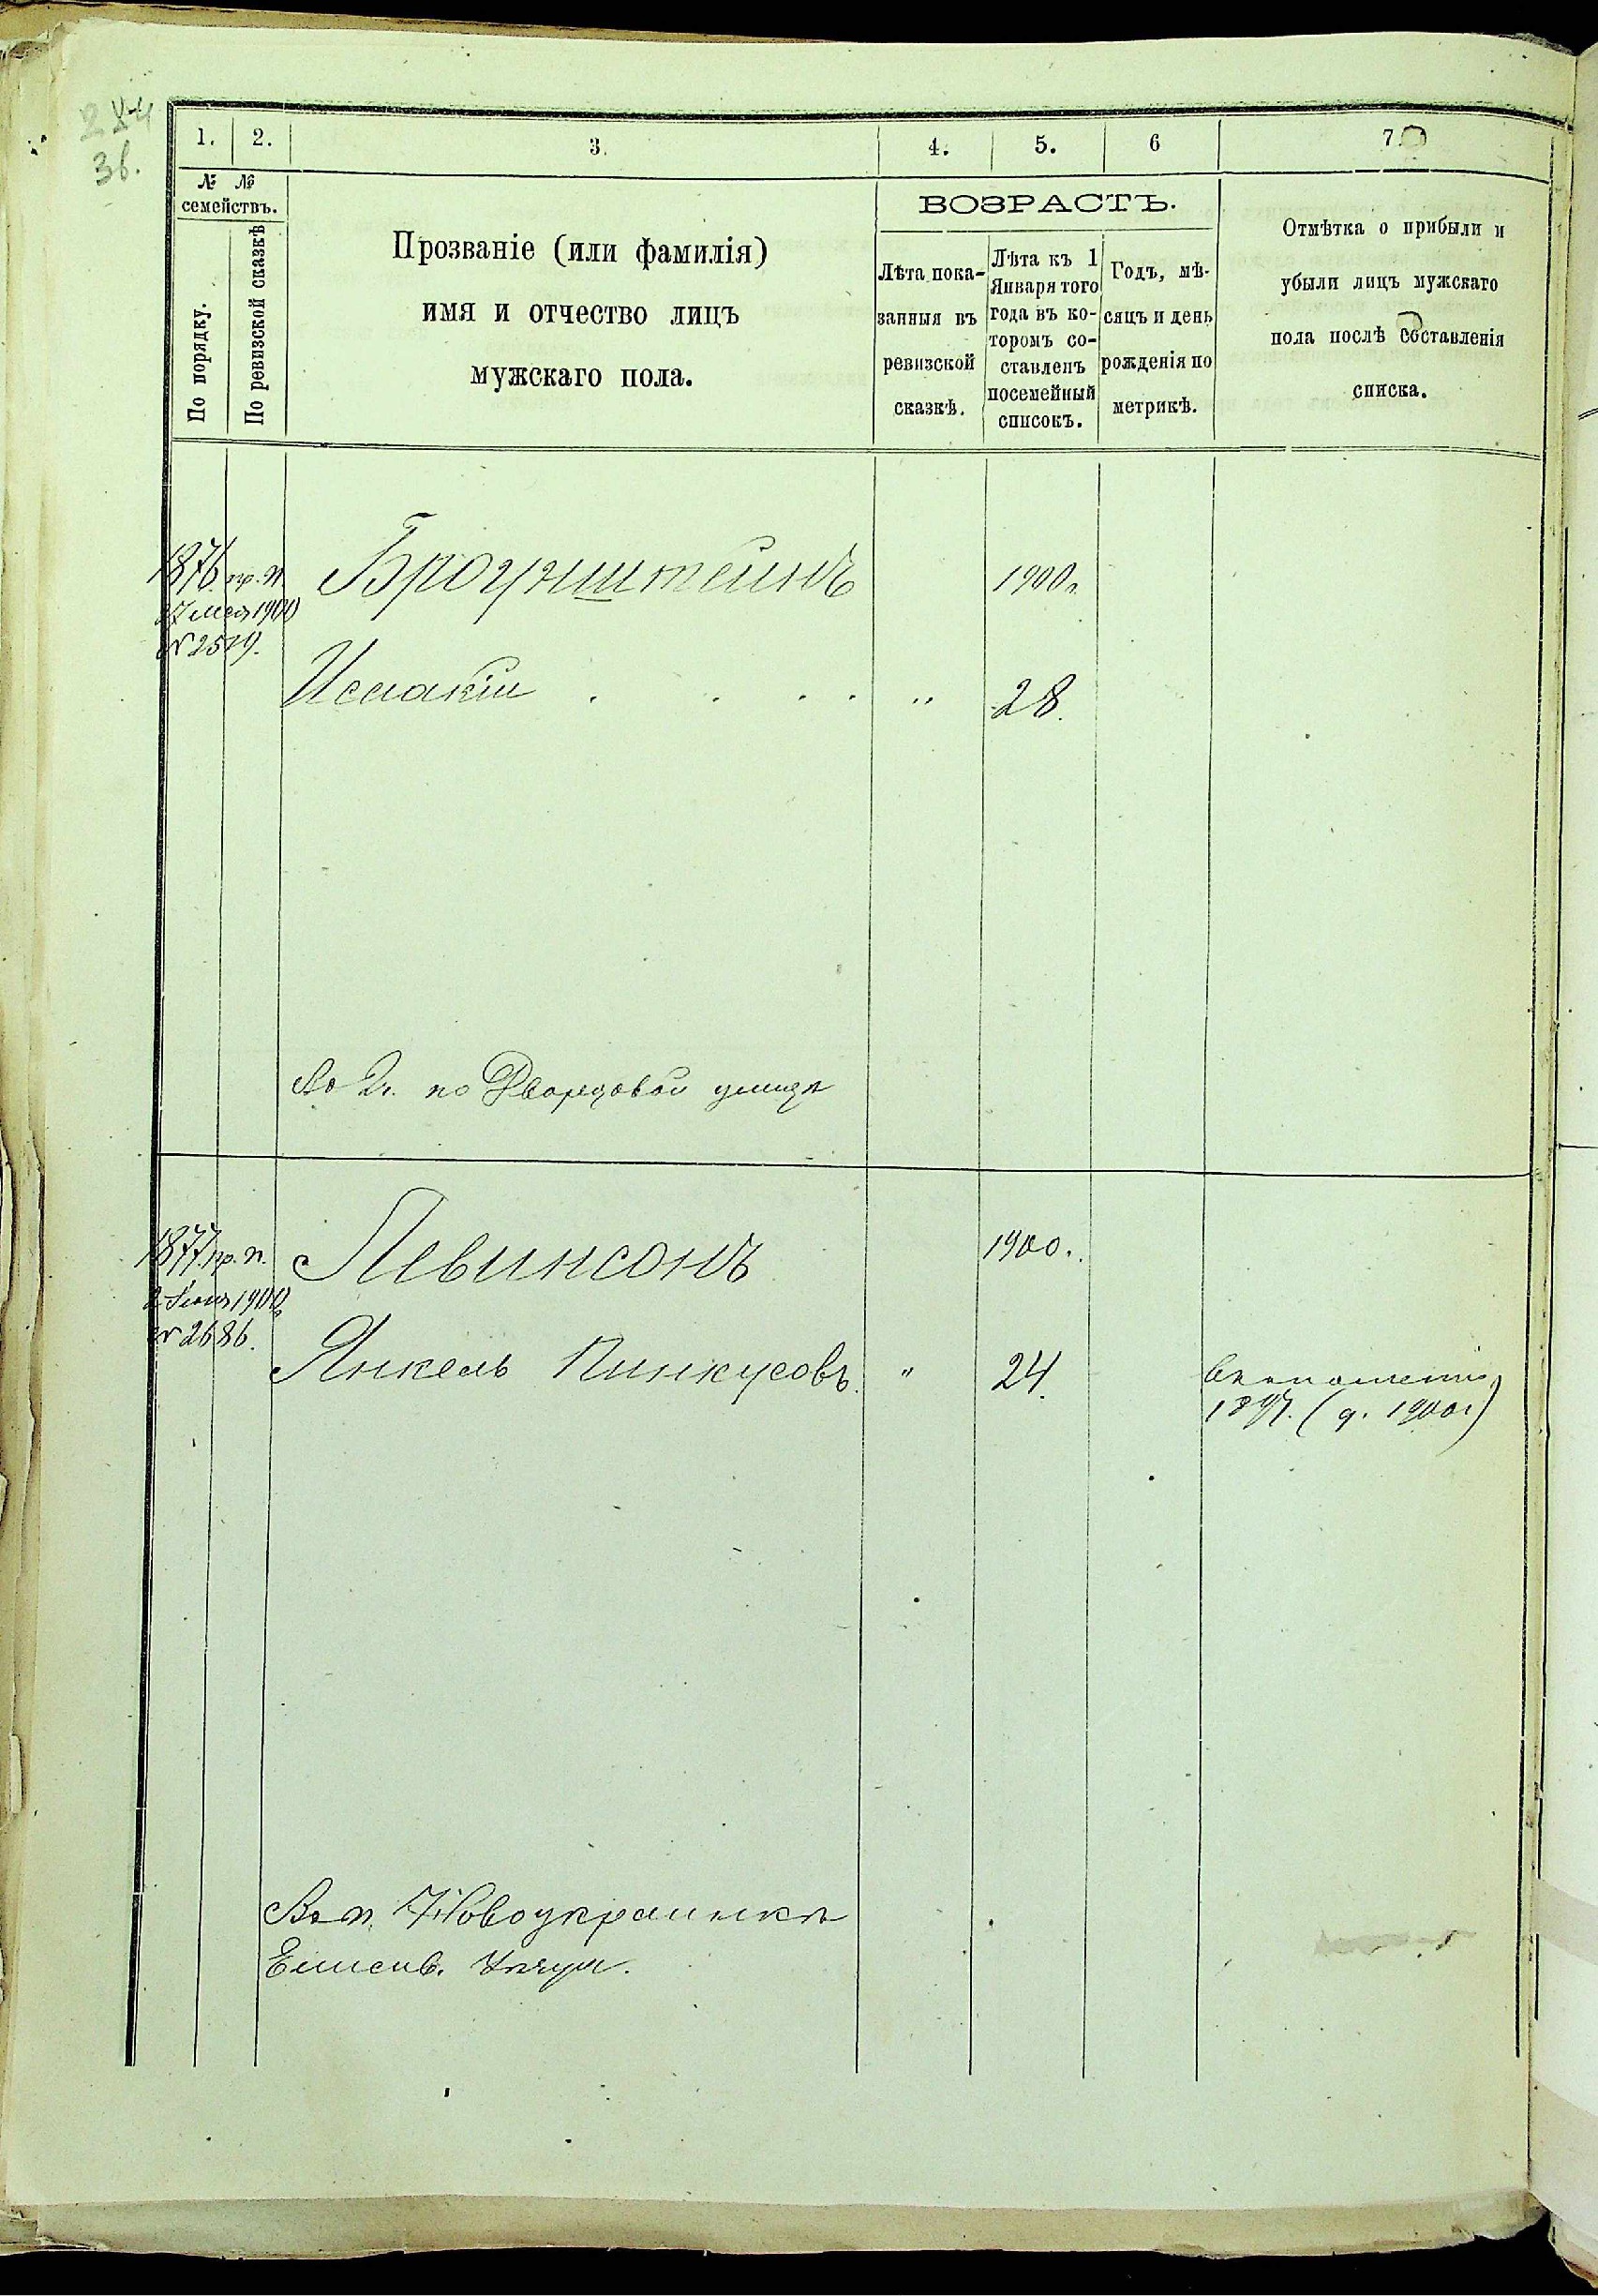 284
Зв.
1. 2. 3. 4. 5. 6 7.
№ №
семействъ.
По порядку.
По ревизской сказкѣ
Прозваніе (или фамилія)
имя и отчество лицъ
мужскаго пола.
ВОЗРАСТЪ.
Лѣта пока-
занныя въ
ревизской
сказкѣ.
Лѣта къ 1
Января того
года въ ко-
торомъ со-
ставленъ
посемейный
списокъ.
Годъ, мѣ-
сяцъ и день
рожденія по
метрикѣ.
Отмѣтка о прибыли и
убыли лицъ мужскаго
пола послѣ составленія
списка.
1876 пр. п. Броунштейнъ 1900г.
мая 1900
№ 25
Исаакій . . . . " 28.
Во 2ч. по Дворцовой улицѣ
1877 пр. п. Левинсонъ 1900.
2 Іюня 1900
№ 2686.
Янкель Пинкусовъ. " 24.
1897. (д. 1900г)
Въ п. Новоукраинкѣ
Елисав. уѣзда.